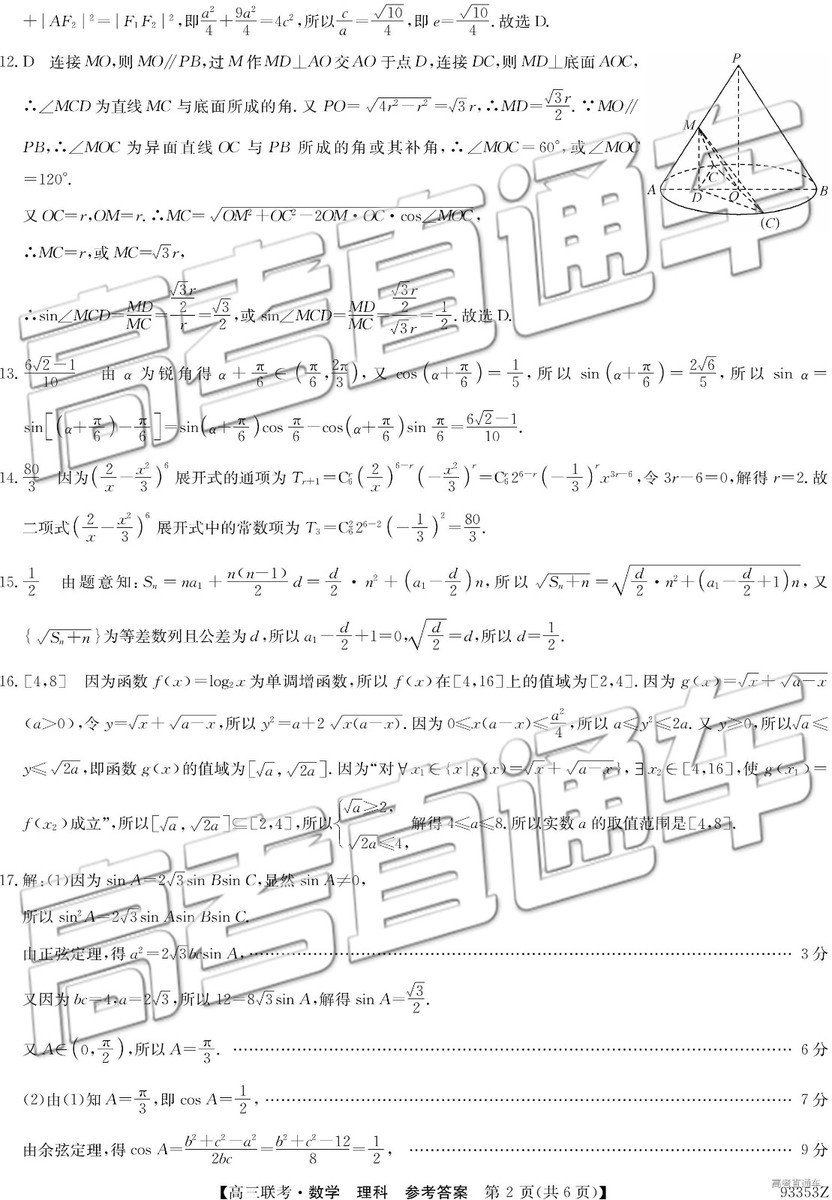 +|AF₂|²=|F₁F₂|²,即a²/4+9a²/4=4c²,所以c/a=√10/4,即e=√10/4.故选D.
12. D 连接MO,则MO∥PB,过M作MD⊥AO交AO于点D,连接DC,则MD⊥底面AOC,
∴∠MCD为直线MC与底面所成的角.又PO=√(4r²−r²)=√3r,∴MD=√3r/2.∵MO∥
PB,∴∠MOC为异面直线OC与PB所成的角或其补角,∴∠MOC=60°,或∠MOC
=120°.
又OC=r,OM=r.∴MC=√(OM²+OC²−2OM·OC·cos∠MOC),
∴MC=r,或MC=√3r,
∴sin∠MCD=MD/MC=(√3r/2)/r=√3/2,或sin∠MCD=MD/MC=(√3r/2)/(√3r)=1/2.故选D.
P
M
C
A
D
O
B
(C)
13. (6√2−1)/10 由α为锐角得α+π/6∈(π/6,2π/3),又cos(α+π/6)=1/5,所以sin(α+π/6)=2√6/5,所以sin α=
sin[(α+π/6)−π/6]=sin(α+π/6)cos π/6−cos(α+π/6)sin π/6=(6√2−1)/10.
14. 80/3 因为(2/x−x²/3)⁶展开式的通项为Tᵣ₊₁=C₆ʳ(2/x)⁶⁻ʳ(−x²/3)ʳ=C₆ʳ2⁶⁻ʳ(−1/3)ʳx³ʳ⁻⁶,令3r−6=0,解得r=2.故
二项式(2/x−x²/3)⁶展开式中的常数项为T₃=C₆²2⁶⁻²(−1/3)²=80/3.
15. 1/2 由题意知:Sₙ=na₁+n(n−1)/2 d=d/2·n²+(a₁−d/2)n,所以√(Sₙ+n)=√(d/2·n²+(a₁−d/2+1)n),又
{√(Sₙ+n)}为等差数列且公差为d,所以a₁−d/2+1=0,√(d/2)=d,所以d=1/2.
16. [4,8] 因为函数f(x)=log₂x为单调增函数,所以f(x)在[4,16]上的值域为[2,4].因为g(x)=√x+√(a−x)
(a>0),令y=√x+√(a−x),所以y²=a+2√(x(a−x)).因为0≤x(a−x)≤a²/4,所以a≤y²≤2a.又y>0,所以√a≤
y≤√(2a),即函数g(x)的值域为[√a,√(2a)].因为“对∀x₁∈{x|g(x)=√x+√(a−x)},∃x₂∈[4,16],使g(x₁)=
f(x₂)成立”,所以[√a,√(2a)]⊆[2,4],所以{√a≥2, √(2a)≤4, 解得4≤a≤8.所以实数a的取值范围是[4,8].
17. 解:(1)因为sin A=2√3sin Bsin C,显然sin A≠0,
所以sin²A=2√3sin Asin Bsin C.
由正弦定理,得a²=2√3bcsin A,…… 3分
又因为bc=4,a=2√3,所以12=8√3sin A,解得sin A=√3/2.
又A∈(0,π/2),所以A=π/3. …… 6分
(2)由(1)知A=π/3,即cos A=1/2, …… 7分
由余弦定理,得cos A=(b²+c²−a²)/2bc=(b²+c²−12)/8=1/2, …… 9分
【高三联考·数学 理科 参考答案 第2页(共6页)】
93353Z
高考直通车
高考直通车
高考直通车